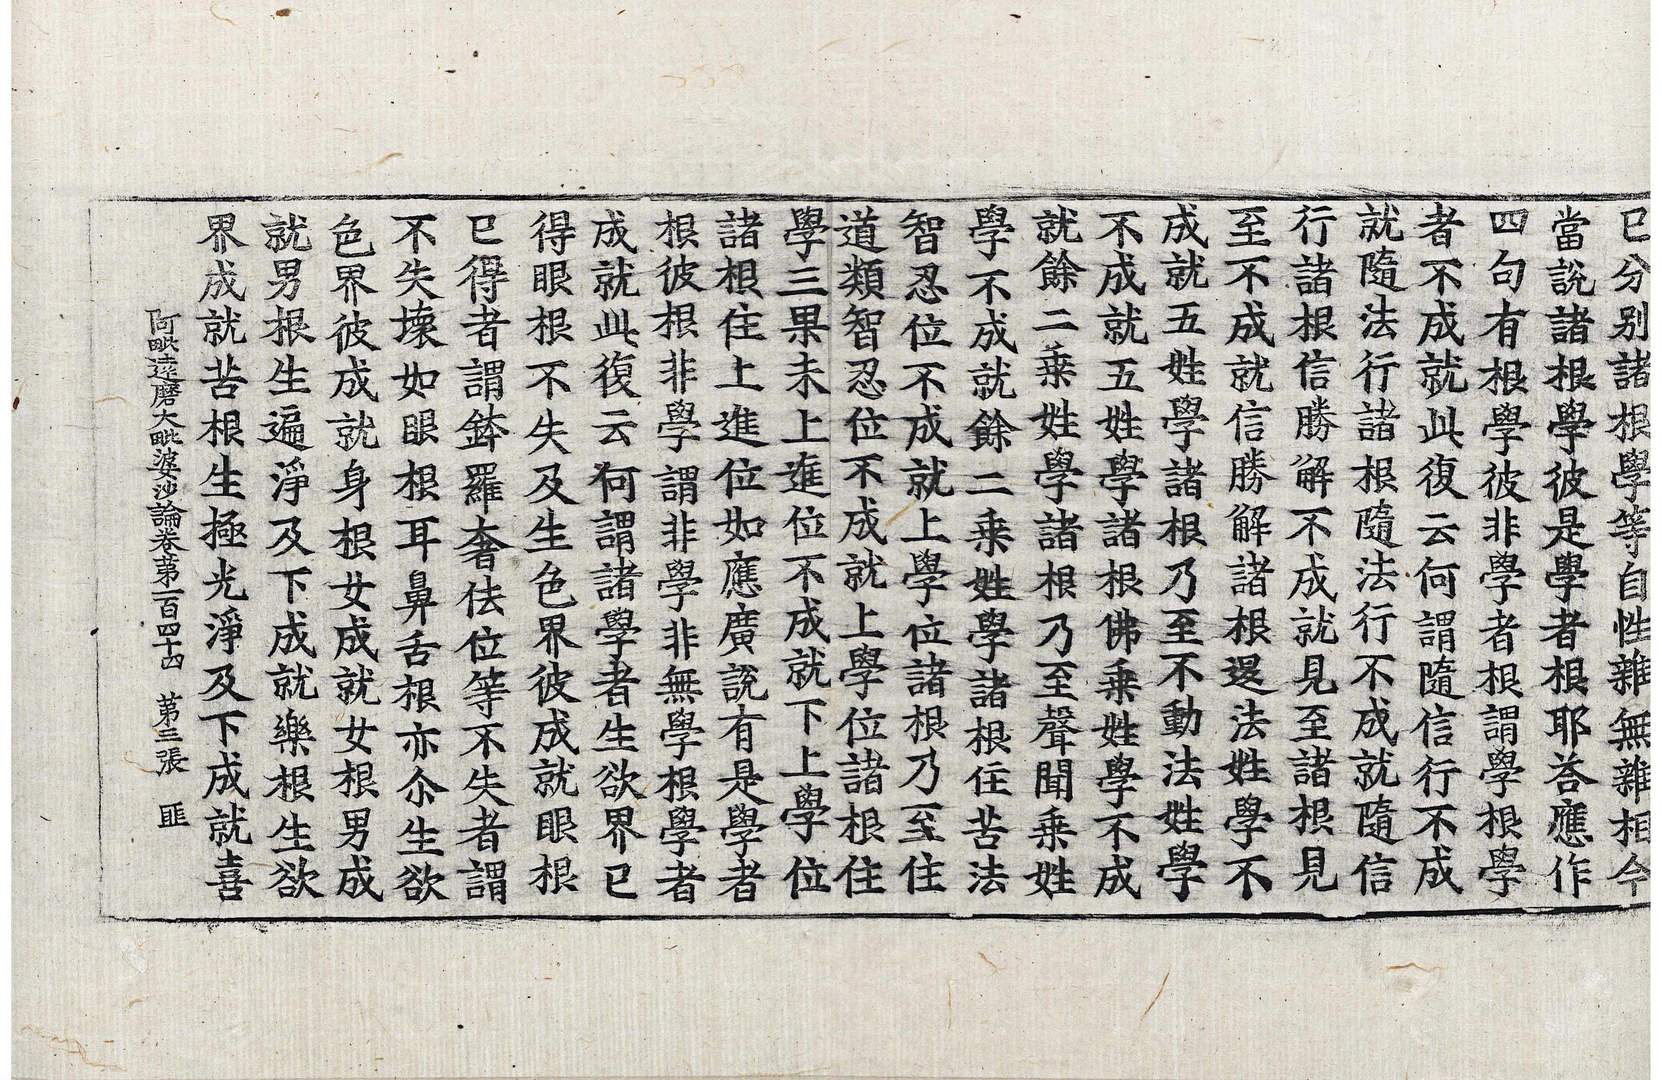 已分別諸根學等自性雜無雜相今
當說諸根學彼是學者根耶荅應作
四句有根學彼非學者根謂學根學
者不成就此復云何謂隨信行不成
就隨法行諸根隨法行不成就隨信
行諸根信勝解不成就見至諸根見
至不成就信勝解諸根退法姓學不
成就五姓學諸根乃至不動法姓學
不成就五姓學諸根佛乘姓學不成
就餘二乘姓學諸根乃至聲聞乘姓
學不成就餘二乘姓學諸根住苦法
智忍位不成就上學位諸根乃至住
道類智忍位不成就上學位諸根住
學三果未上進位不成就下上學位
諸根住上進位如應廣說有是學者
根彼根非學謂非學非無學根學者
成就此復云何謂諸學者生欲界已
得眼根不失及生色界彼成就眼根
已得者謂鉢羅奢佉位等不失者謂
不失壞如眼根耳鼻舌根亦尒生欲
色界彼成就身根女成就女根男成
就男根生遍淨及下成就樂根生欲
界成就苦根生極光淨及下成就喜
阿毗達磨大毗婆沙論卷第一百四十四 第三張 匪